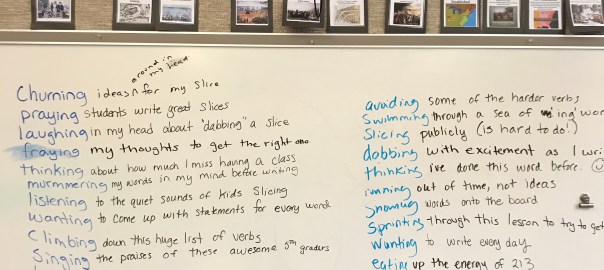 around in my head
Churning ideas ^ for my slice
praying students write great slices
laughing in my head about "dabbing" a slice
fraying my thoughts to get the right one
thinking about how much I miss having a class
murmmering my words in my mind before writing
listening to the quiet sounds of kids slicing
wanting to come up with statements for every word
Climbing down this huge list of verbs
Singing the praises of these awesome 5th graders
avoiding some of the harder verbs
Swimming through a sea of "ing" wor
Slicing publicly (is hard to do!)
dobbing with excitement as I wri
thinking ive done this word before.
running out of time, not ideas
words onto the board
Sprinting through this lesson to try to get
Wanting to write every day
eating up the energy of 213